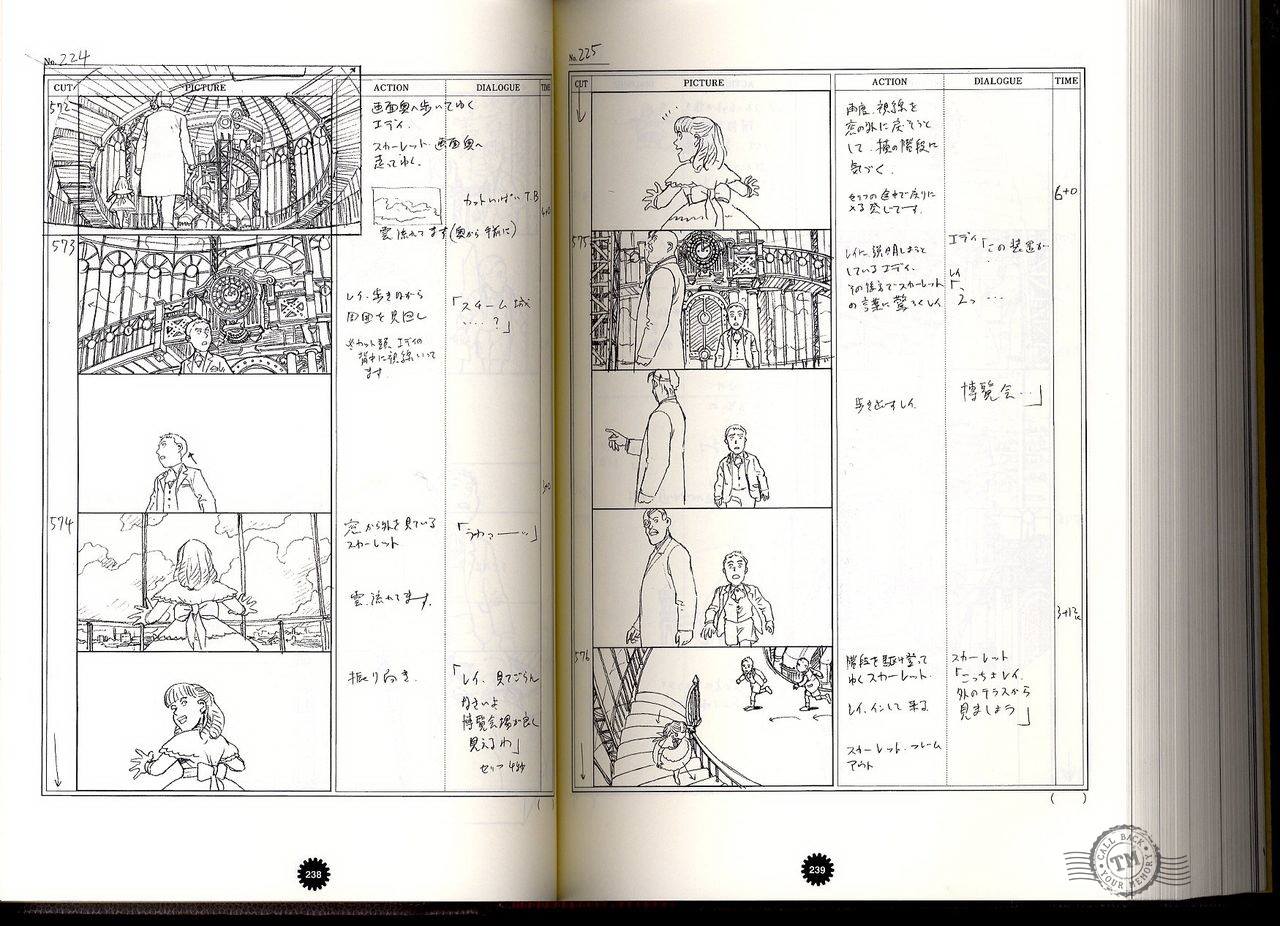 No. 224
CUT PICTURE ACTION DIALOGUE TIME
572
画面奥へ歩いてゆく
エディ.
スカーレット 画面奥へ
走ってゆく.
カットいっぱい T.B
雲 流れてます(奥から手前に)
573
レイ、歩きながら
周囲を見回し
「スチーム城
‥‥?」
背中に視線
ます
574
窓から外を見ている
スカーレット
「うわぁーーっ」
雲、流れてます.
振り向き.
「レイ、見てごらん
なさいよ
博覧会場が良く
見えるわ」
セリフ 4秒
238
No. 225
CUT PICTURE ACTION DIALOGUE TIME
再度、視線を
窓の外に戻そうと
して、横の階段に
気づく.
6+0
575
レイに説明しようと
しているエディ.
その後方でスカーレット
の言葉に驚くレイ
エディ「この装置が
レイ
「えっ…
歩き出すレイ.
博覧会…」
576
階段を駆け登って
ゆくスカーレット.
レイ、インして来る
スカーレット・フレーム
アウト
スカーレット
「こっちよレイ.
外のテラスから
見ましょう」
( )
239
CALL BACK
TM
YOUR MEMORY